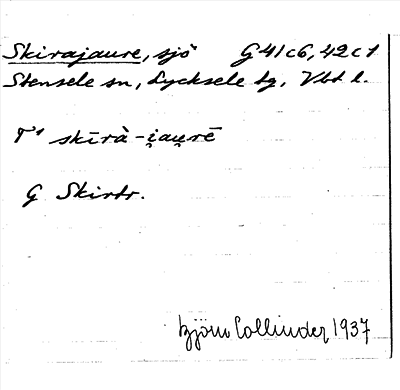 Skirajaure, sjö G 41 c 6, 42 c 1
Stensele sn, Lycksele lg, Vbt l.
T¹ skīrà-i̯au̯rē
G Skirtr.
Björn Collinder 1937